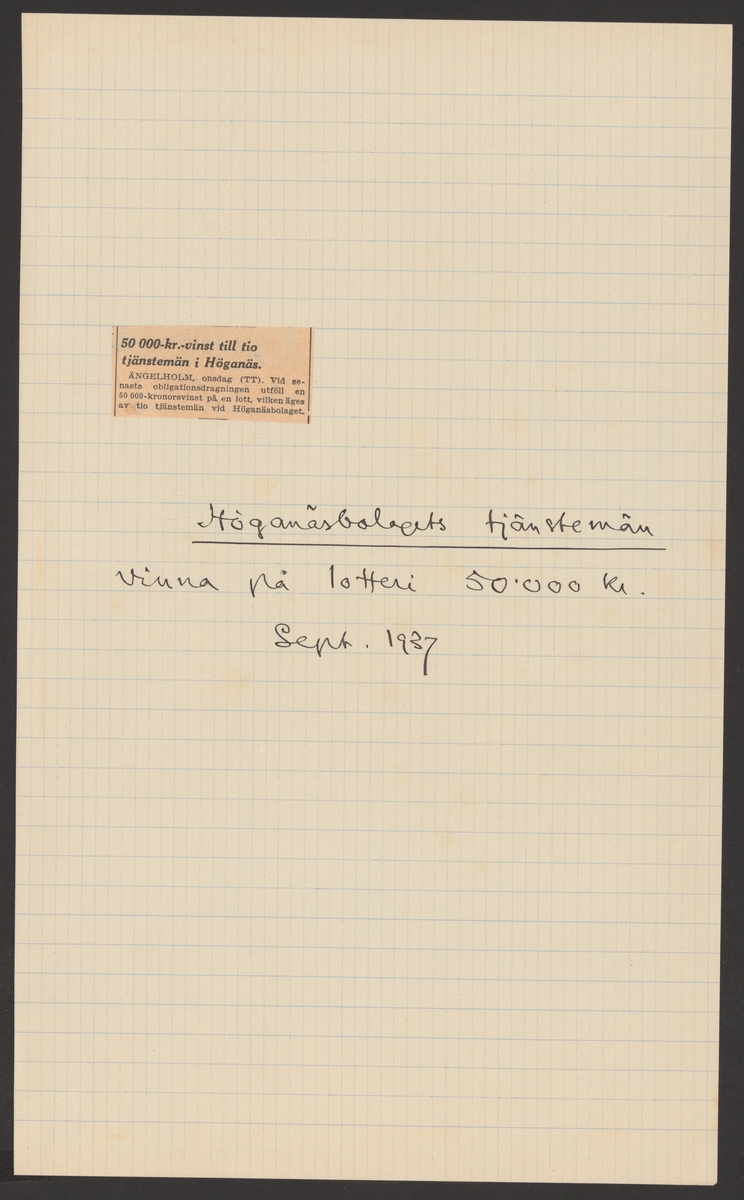 50 000-kr.-vinst till tio
tjänstemän i Höganäs.
ÄNGELHOLM, onsdag (TT). Vid se-
naste obligationsdragningen utföll en
50 000-kronorsvinst på en lott, vilken äges
av tio tjänstemän vid Höganäsbolaget.
Höganäsbolagets tjänstemän
vinna på lotteri 50.000 kr.
Sept. 1937